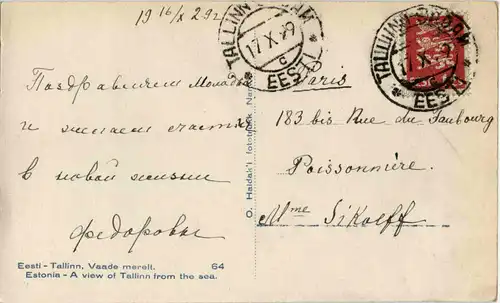 19 16/X 29 г.
TALLINN-SADAM
17.X.29
C
EESTI
TALLINN-SADAM
17.X.29
C
EESTI
Поздравляем Молодых
и желаем счастья
в новой жизни
Федоровы
Paris
183 bis Rue du Faubourg
Poissonnière.
Mme Sikoleff
O. Haidak'i fototrükk
Eesti - Tallinn. Vaade merelt. 64
Estonia - A view of Tallinn from the sea.